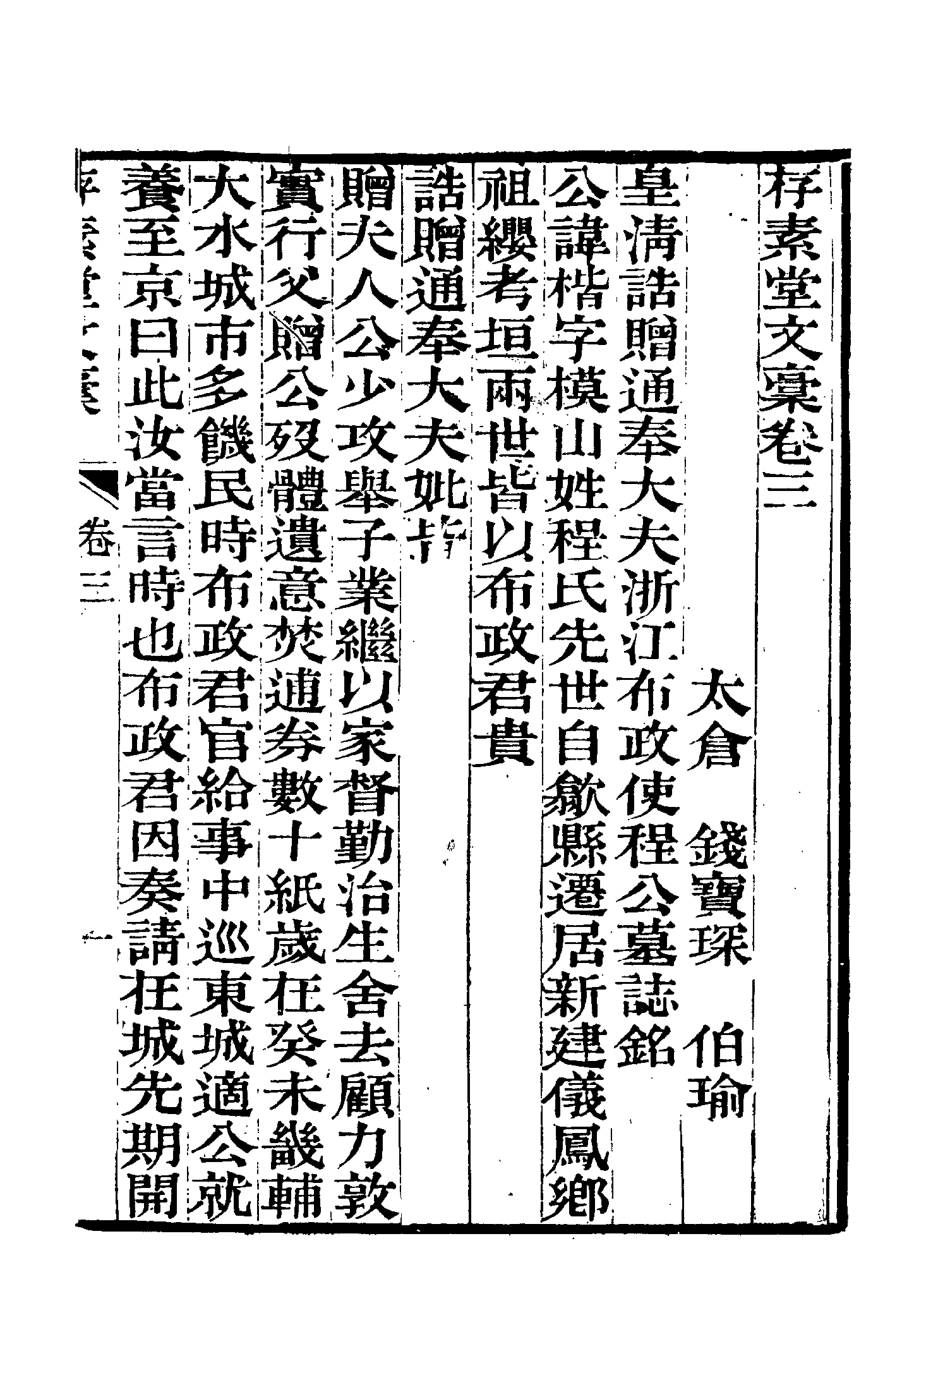 存素堂文稾卷三
太倉　錢寶琛　伯瑜
皇淸誥贈通奉大夫浙江布政使程公墓誌銘
公諱楷字模山姓程氏先世自歙縣遷居新建儀鳳鄉
祖纓考垣兩世皆以布政君貴
誥贈通奉大夫妣皆
贈夫人公少攻舉子業繼以家督勤治生舍去顧力敦
實行父贈公歿體遺意焚逋券數十紙歲在癸未畿輔
大水城市多饑民時布政君官給事中巡東城適公就
養至京曰此汝當言時也布政君因奏請在城先期開
存素堂文稾
卷三
一